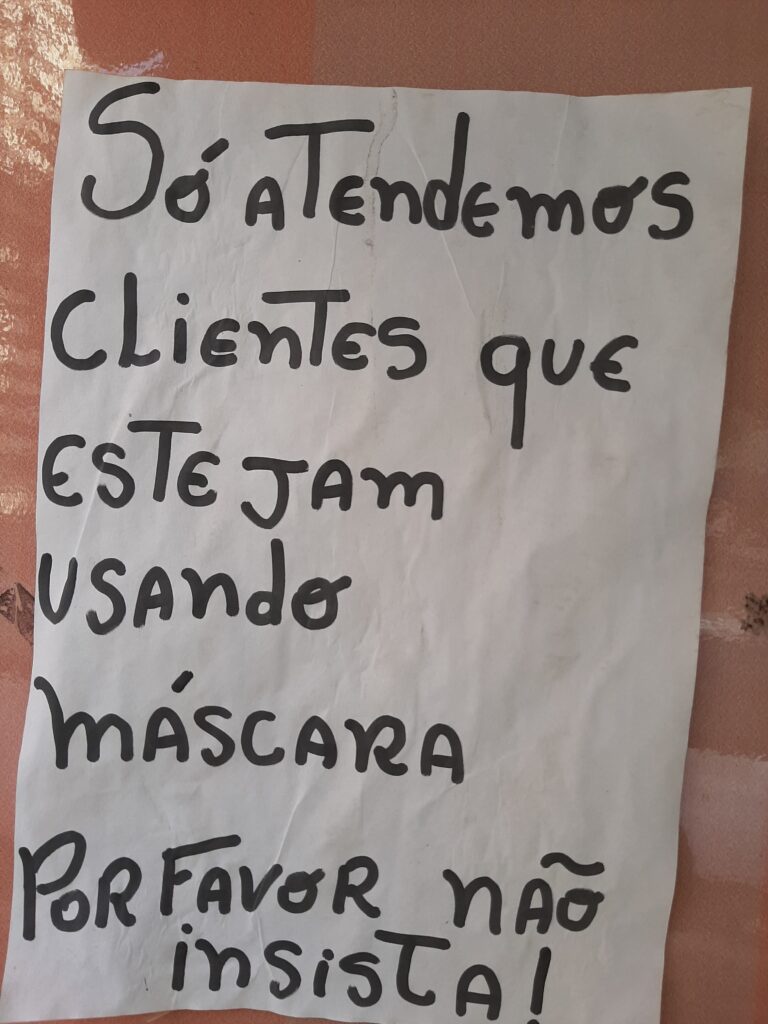 Só atendemos
clientes que
estejam
usando
máscara
Por favor não
insista!